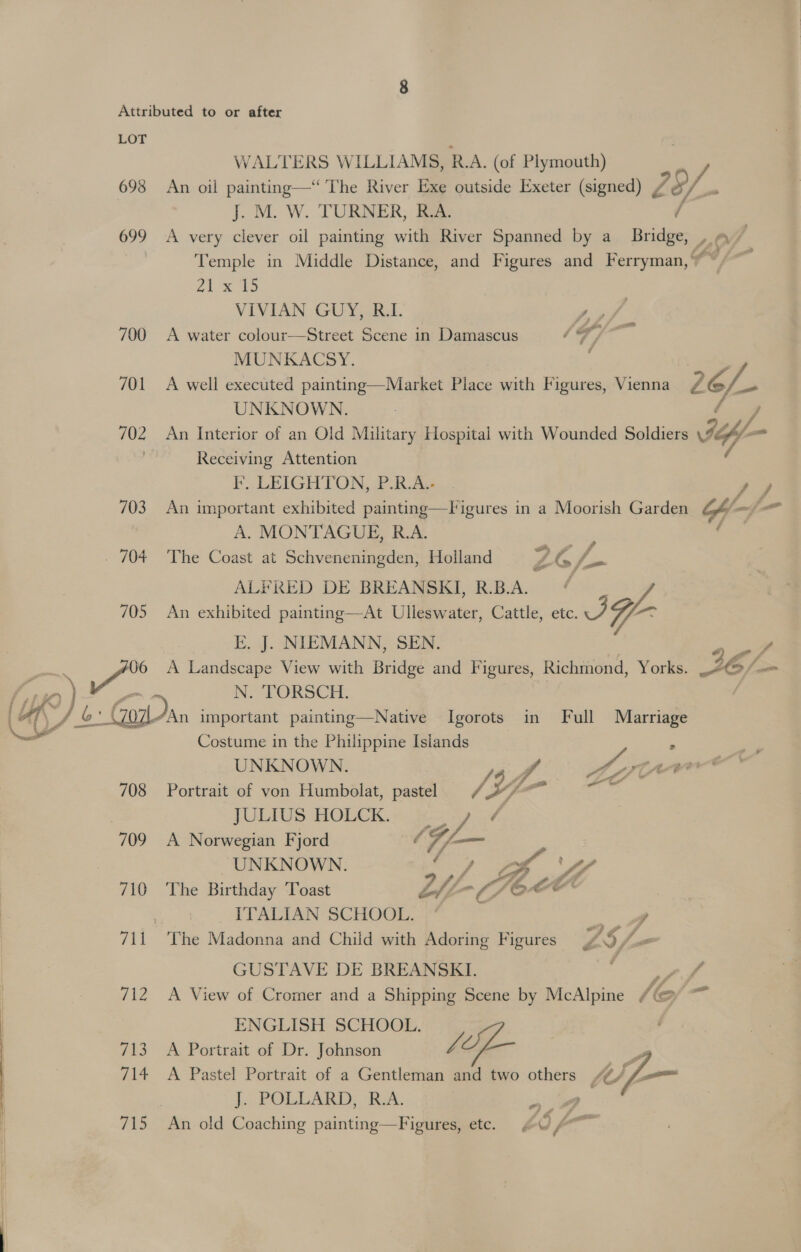 8
Attributed to or after
LOT
WALTERS WILLIAMS, R.A. (of Plymouth)
698 An oil painting—“ The River Exe outside Exeter (signed) 28/-
J. M. W. TURNER, R.A.
699 A very clever oil painting with River Spanned by a Bridge,
Temple in Middle Distance, and Figures and Ferryman,
21 x 15
VIVIAN GUY, R.I.
700 A water colour—Street Scene in Damascus
MUNKACSY.
701 A well executed painting—Market Place with Figures, Vienna 26/-
UNKNOWN.
702 An Interior of an Old Military Hospital with Wounded Soldiers
Receiving Attention
F. LEIGHTON, P.R.A.
703 An important exhibited painting—Figures in a Moorish Garden
A. MONTAGUE, R.A.
704 The Coast at Schveneningden, Holland 26/-
ALFRED DE BREANSKI, R.B.A.
705 An exhibited painting—At Ulleswater, Cattle, etc.
E. J. NIEMANN, SEN.
706 A Landscape View with Bridge and Figures, Richmond, Yorks. 36/-
N. TORSCH.
707 An important painting—Native Igorots in Full Marriage
Costume in the Philippine Islands
UNKNOWN.
708 Portrait of von Humbolat, pastel
JULIUS HOLCK.
709 A Norwegian Fjord
UNKNOWN.
710 The Birthday Toast
ITALIAN SCHOOL.
711 The Madonna and Child with Adoring Figures 25/-
GUSTAVE DE BREANSKI.
712 A View of Cromer and a Shipping Scene by McAlpine 16/-
ENGLISH SCHOOL.
713 A Portrait of Dr. Johnson 10/-
714 A Pastel Portrait of a Gentleman and two others
J. POLLARD, R.A.
715 An old Coaching painting—Figures, etc.